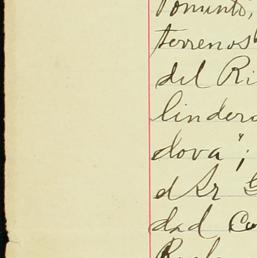 terrenos
del Ri
lindero
dova";
d Sr G
dad Co